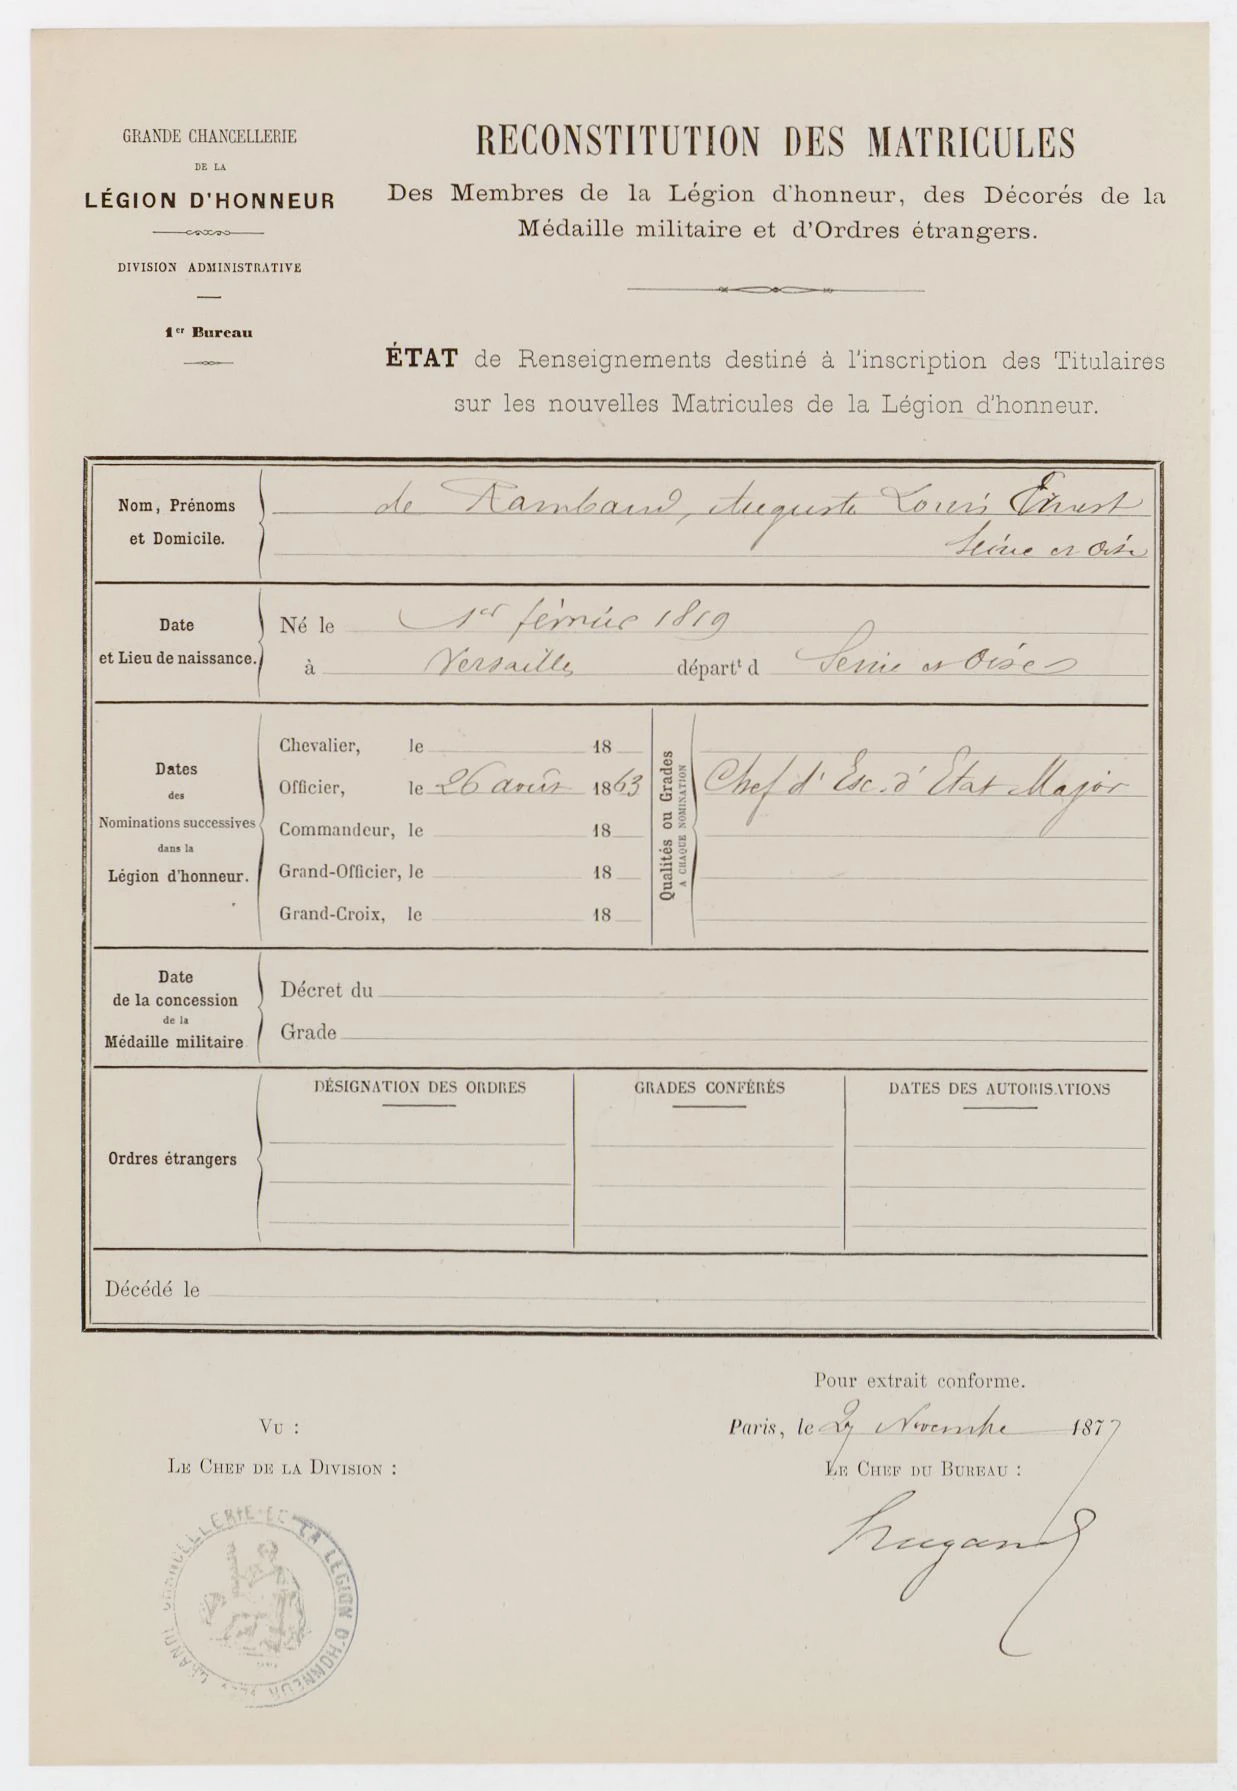 GRANDE CHANCELLERIE
DE LA
LÉGION D'HONNEUR
DIVISION ADMINISTRATIVE
1er Bureau
RECONSTITUTION DES MATRICULES
Des Membres de la Légion d'honneur, des Décorés de la
Médaille militaire et d'Ordres étrangers.
ÉTAT de Renseignements destiné à l'inscription des Titulaires
sur les nouvelles Matricules de la Légion d'honneur.
Nom, Prénoms
et Domicile.
de Rambaud, Auguste Louis Ernest
Seine et Oise
Date
et Lieu de naissance.
Né le 1er février 1819
à Versailles départt d Seine et Oise
Dates
des
Nominations successives
dans la
Légion d'honneur.
Chevalier, le 18
Officier, le 26 août 1863
Commandeur, le 18
Grand-Officier, le 18
Grand-Croix, le 18
Qualités ou Grades
A CHAQUE NOMINATION
Chef d'Esc. d'Etat Major
Date
de la concession
de la
Médaille militaire
Décret du
Grade
Ordres étrangers
DÉSIGNATION DES ORDRES
GRADES CONFÉRÉS
DATES DES AUTORISATIONS
Décédé le
Pour extrait conforme.
Paris, le 27 Novembre 1877
LE CHEF DU BUREAU :
VU :
LE CHEF DE LA DIVISION :
GRANDE CHANCELLERIE DE LA LÉGION D'HONNEUR